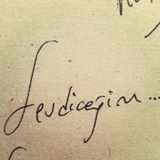 Sevdiceğim...